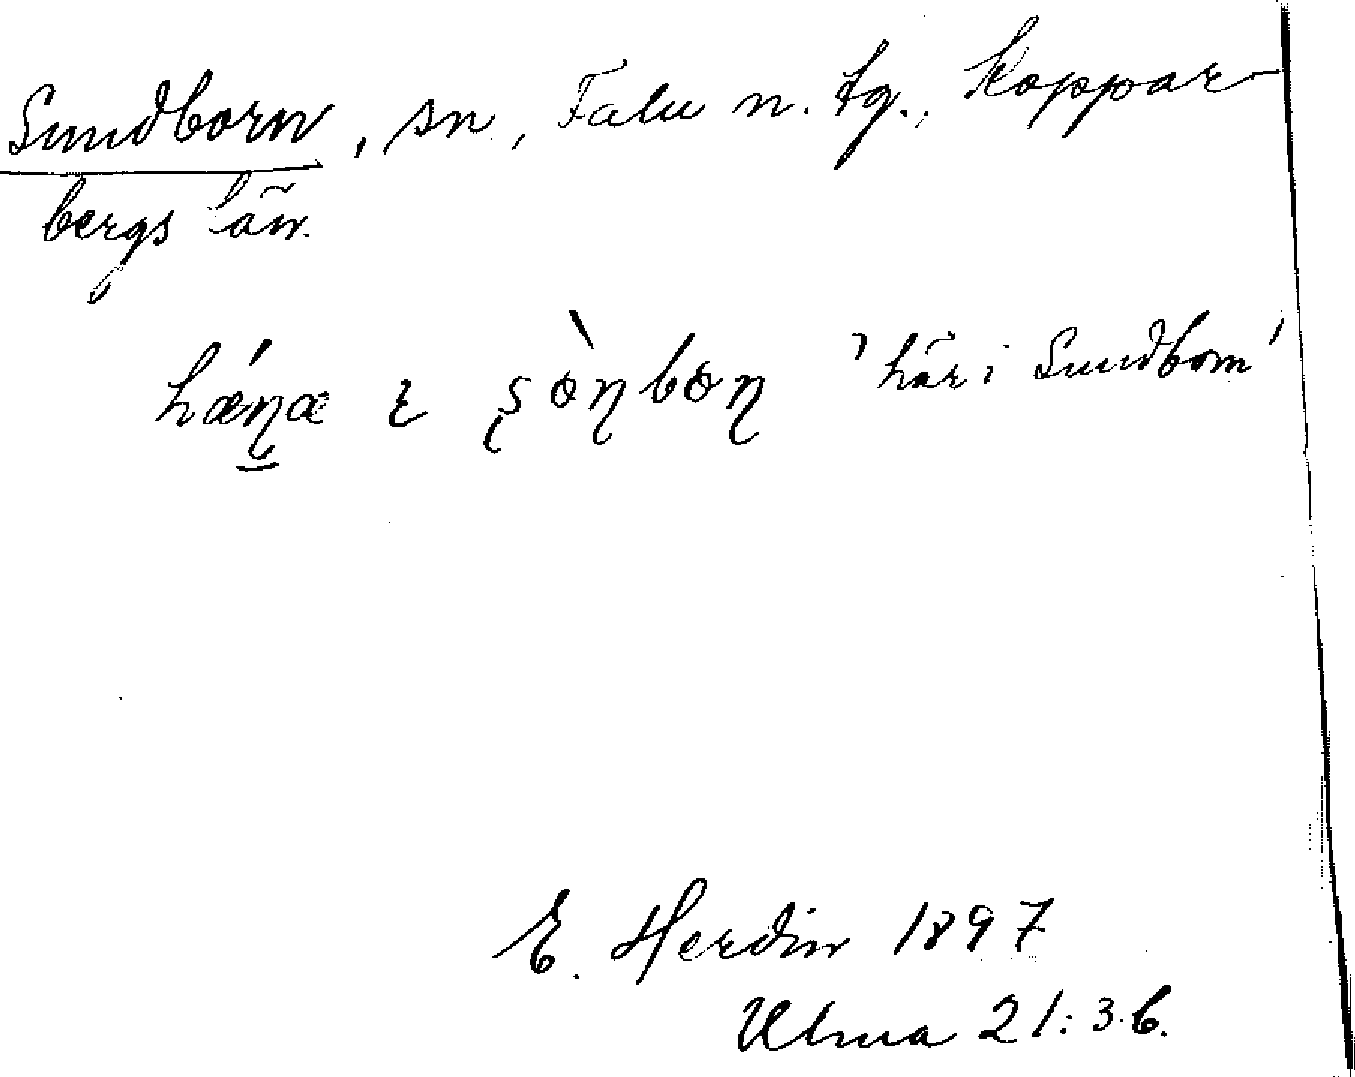 Sundborn, sn, Falu n. tg., Koppar-
bergs län.
hǽŋæ ɩ sɵ̀ŋbɵŋ 'här i Sundborn'
E. Herdin 1897
Ulma 21: 3. b.